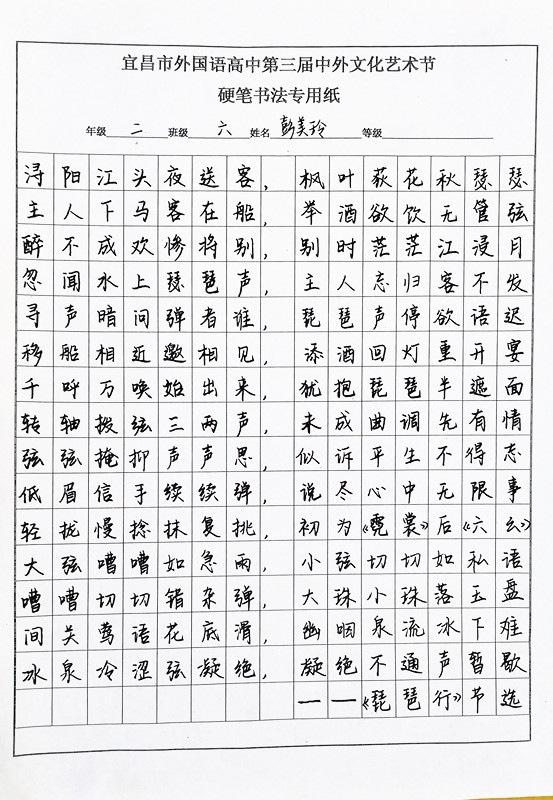 宜昌市外国语高中第三届中外文化艺术节
硬笔书法专用纸
年级 二 班级 六 姓名 彭美玲 等级
浔阳江头夜送客，枫叶荻花秋瑟瑟
主人下马客在船，举酒欲饮无管弦
醉不成欢惨将别，别时茫茫江浸月
忽闻水上琵琶声，主人忘归客不发
寻声暗问弹者谁，琵琶声停欲语迟
移船相近邀相见，添酒回灯重开宴
千呼万唤始出来，犹抱琵琶半遮面
转轴拨弦三两声，未成曲调先有情
弦弦掩抑声声思，似诉平生不得志
低眉信手续续弹，说尽心中无限事
轻拢慢捻抹复挑，初为《霓裳》后《六幺》
大弦嘈嘈如急雨，小弦切切如私语
嘈嘈切切错杂弹，大珠小珠落玉盘
间关莺语花底滑，幽咽泉流冰下难
冰泉冷涩弦凝绝，凝绝不通声暂歇
——《琵琶行》节选